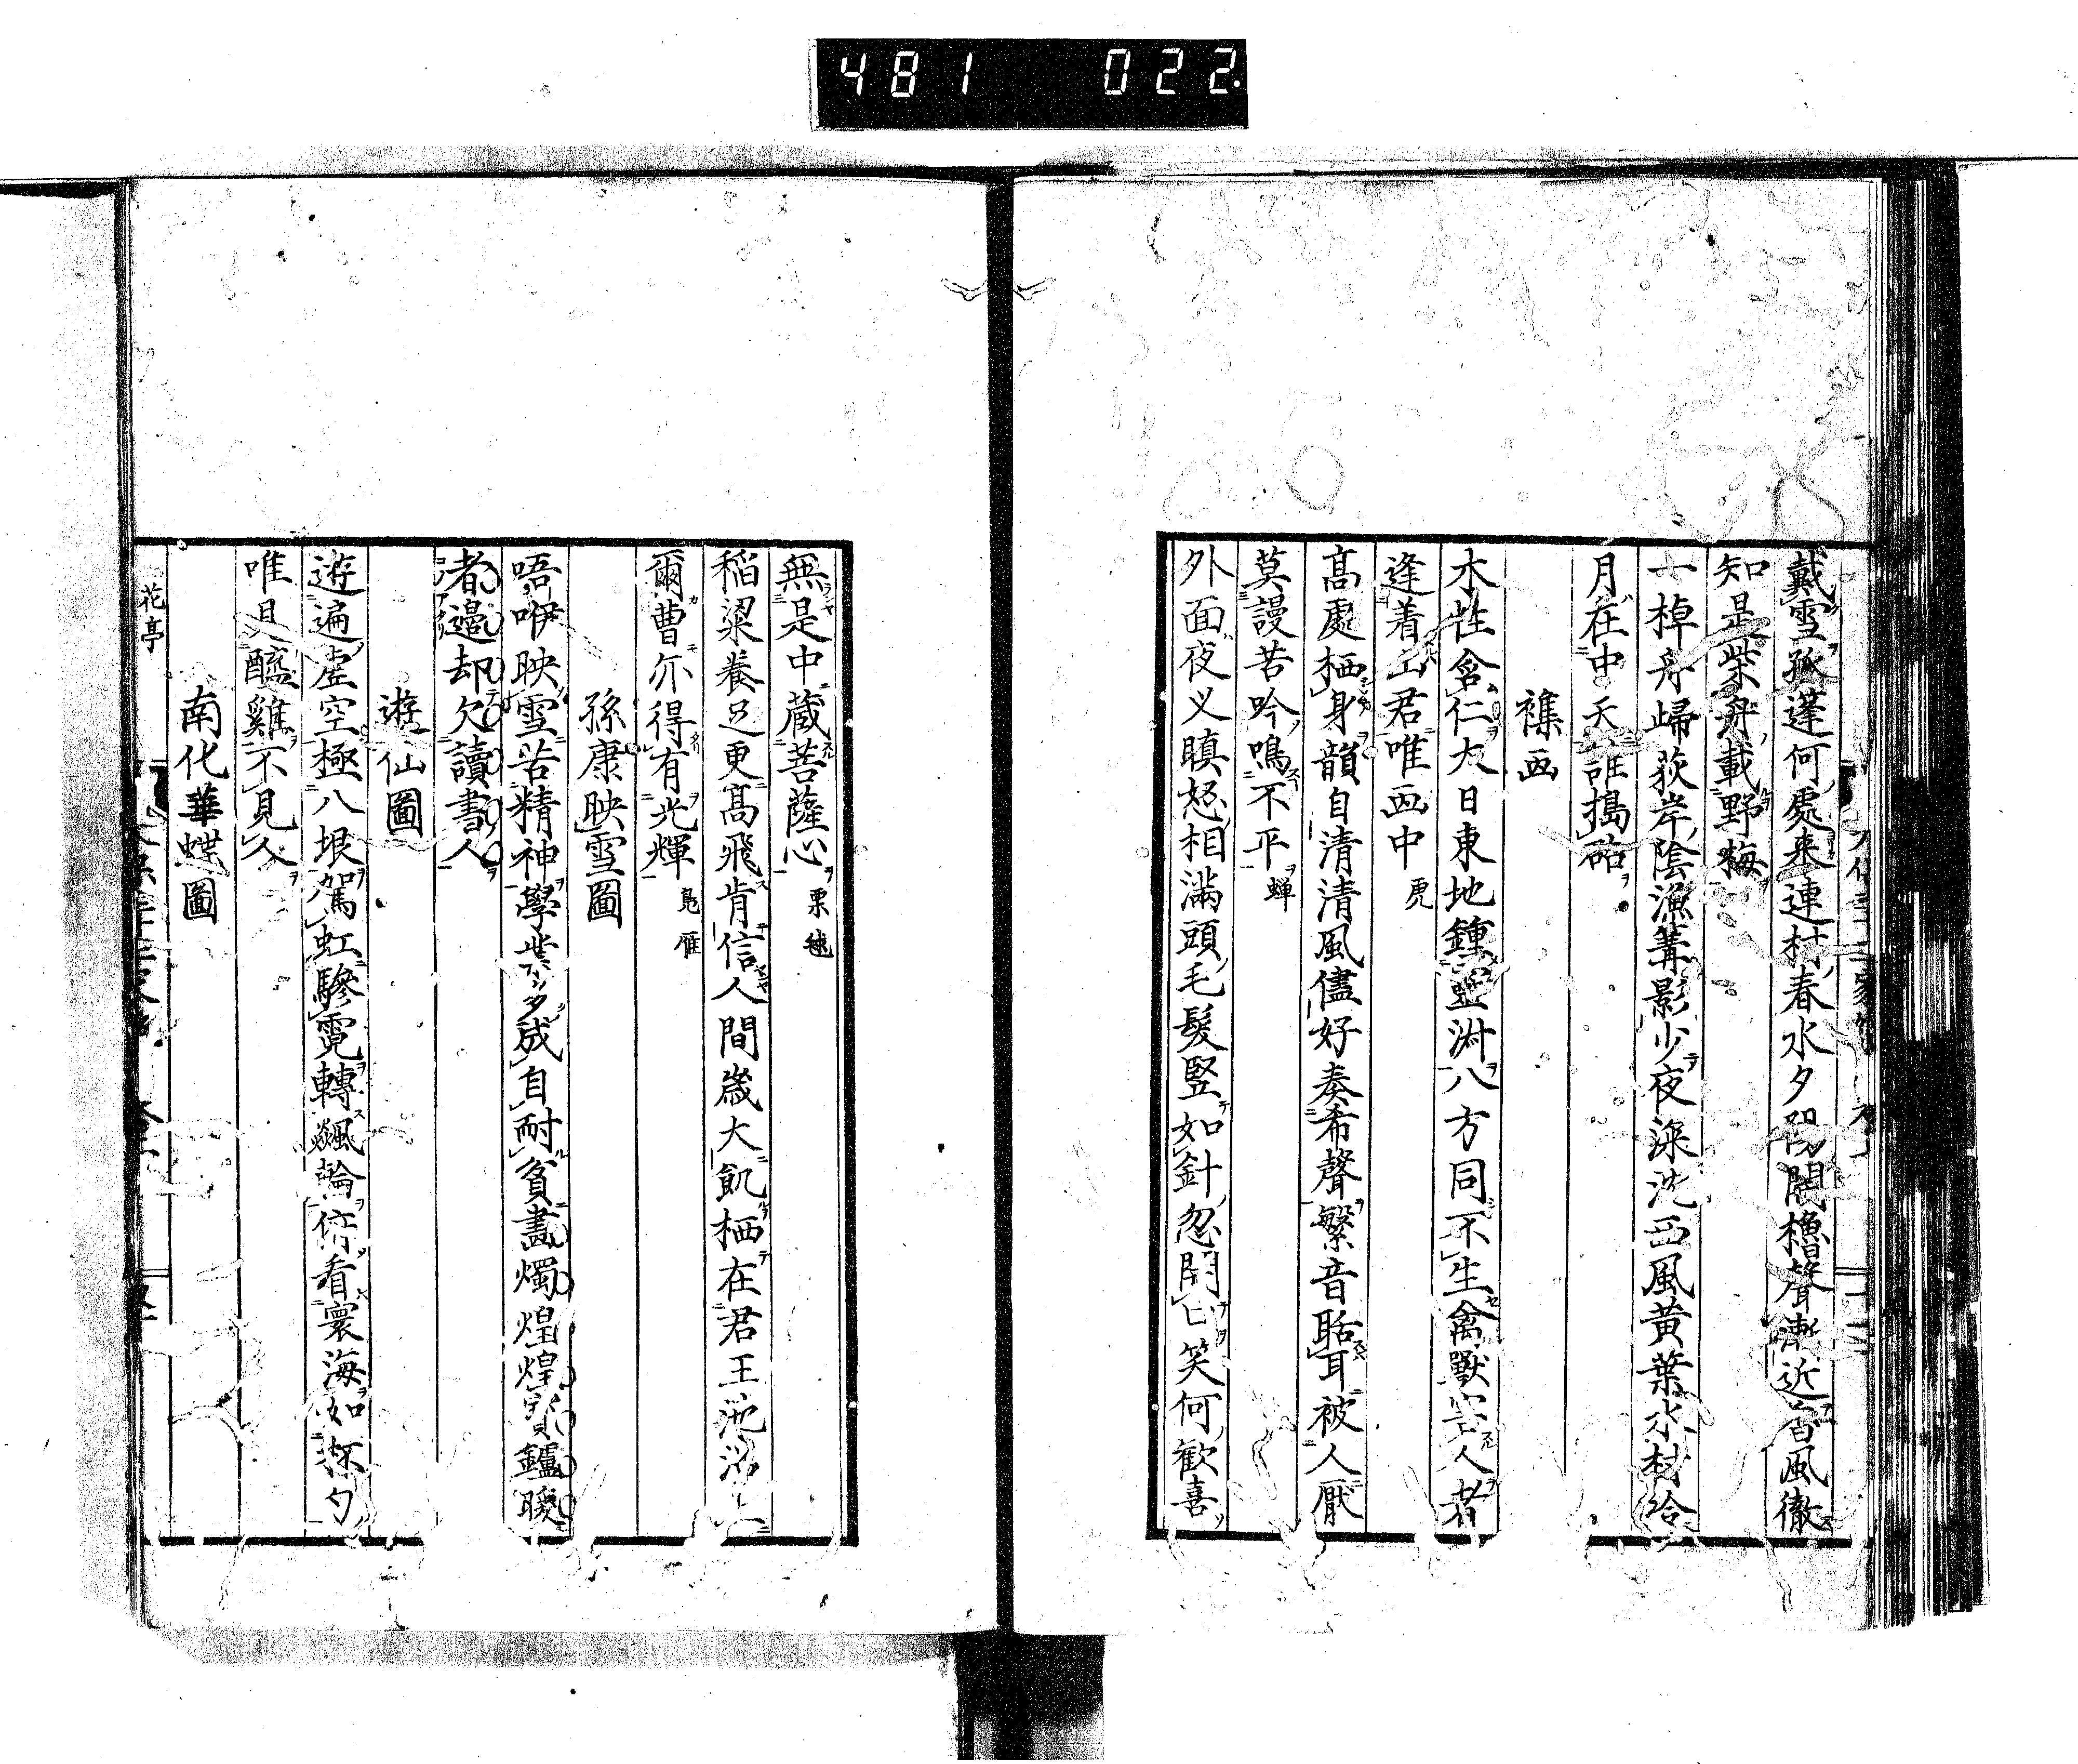 481 022
戴雪孤蓬何處来連村春水夕陽開櫓聲漸近香風徹
知是柴舟載野梅
一棹舟歸荻岸陰漁篝影少夜深沈西風黄葉水村給
月在中天誰搗砧
襍画
木性含仁大日東地鍾霊淋八方同不生禽獣害人者
逢着山君唯画中 虎
高處栖身韻自清清風儘好奏希聲繁音聒耳被人厭
莫謾苦吟鳴不平 蝉
外面夜叉瞋怒相滿頭毛髮竪如針忽開匕笑何歓喜
無是中蔵菩薩心 栗毬
稲粱養足更高飛肯信人間歳大飢栖在君王池沼上
爾曹亦得有光輝 鳧雁
孫康映雪圖
唔咿映雪苦精神學業多成自耐貧畫燭煌煌寳鑪暖
者邉却欠讀書人
遊仙圖
遊遍虚空極八垠駕虹驂霓轉飈輪俯看寰海如杯勺
唯見醯雞不見人
南化華蝶圖
花亭